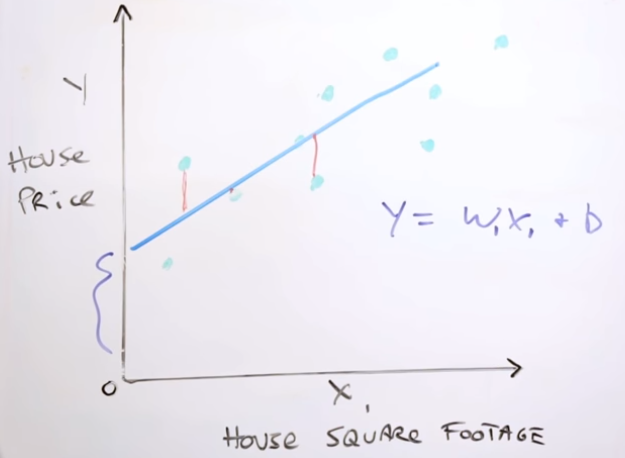 Y
House
Price
Y = W₁X₁ + b
0
X₁
House Square Footage